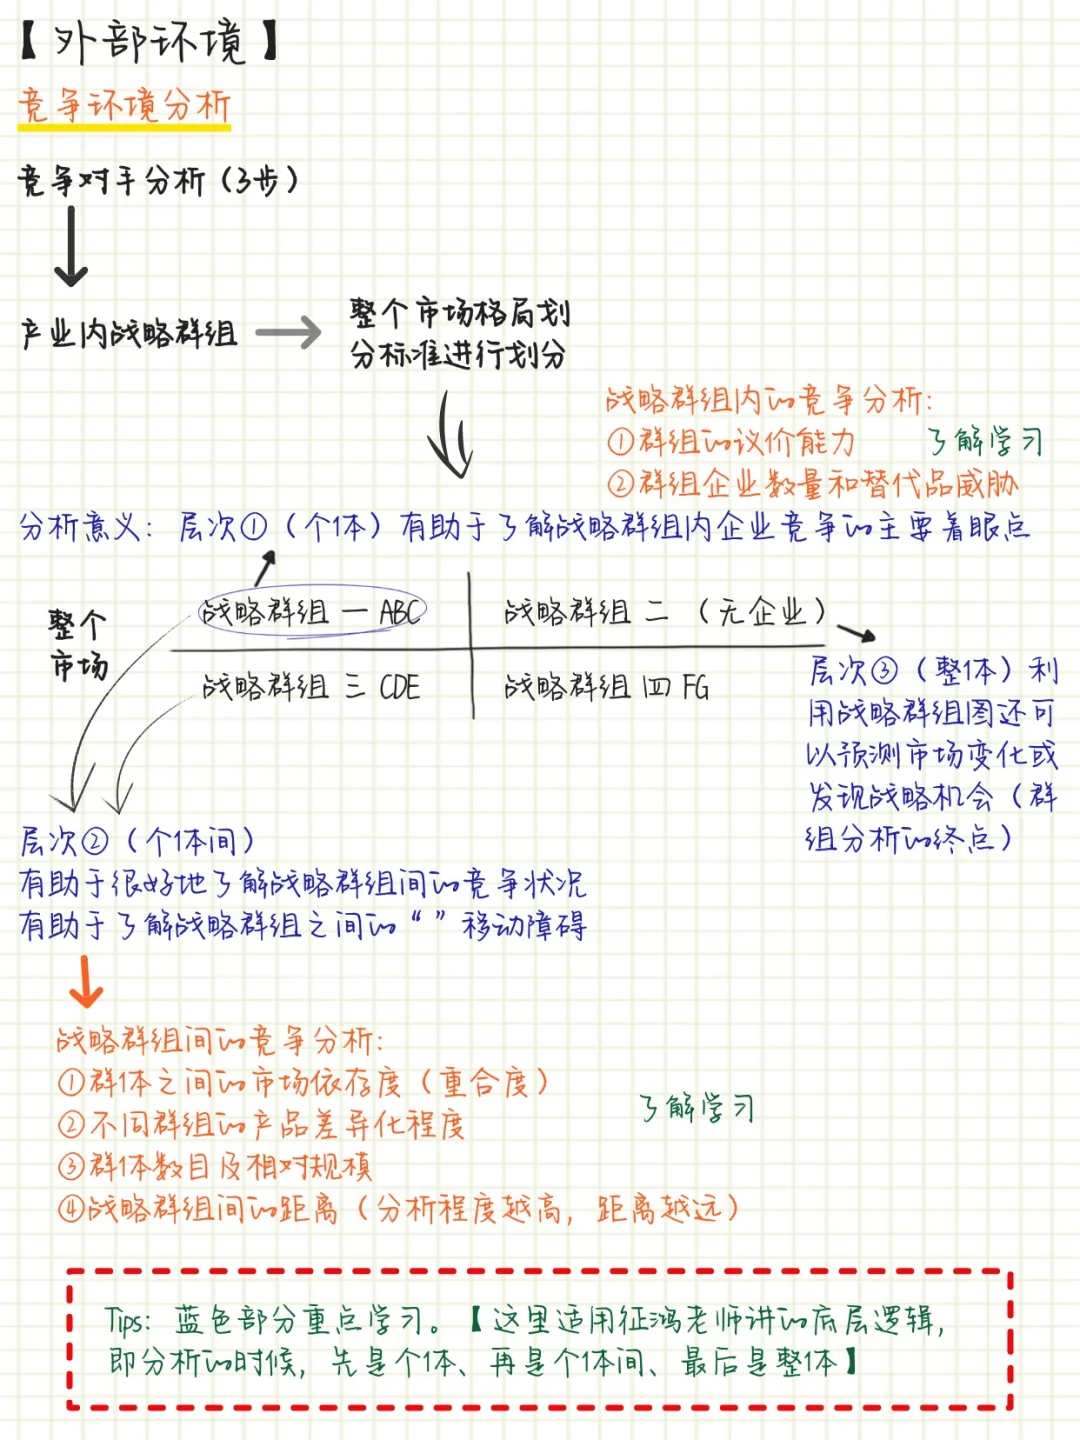 【外部环境】
竞争环境分析
竞争对手分析（3步）
产业内战略群组
整个市场格局划
分标准进行划分
战略群组内的竞争分析：
①群组的议价能力
了解学习
②群组企业数量和替代品威胁
分析意义：层次①（个体）有助于了解战略群组内企业竞争的主要着眼点
整个
市场
战略群组一ABC
战略群组二（无企业）
战略群组三CDE
战略群组四FG
层次③（整体）利
用战略群组图还可
以预测市场变化或
发现战略机会（群
组分析的终点）
层次②（个体间）
有助于很好地了解战略群组间的竞争状况
有助于了解战略群组之间的“ ”移动障碍
战略群组间的竞争分析：
①群体之间的市场依存度（重合度）
了解学习
②不同群组的产品差异化程度
③群体数目及相对规模
④战略群组间的距离（分析程度越高，距离越远）
Tips：蓝色部分重点学习。【这里适用征鸿老师讲的底层逻辑，
即分析的时候，先是个体、再是个体间、最后是整体】